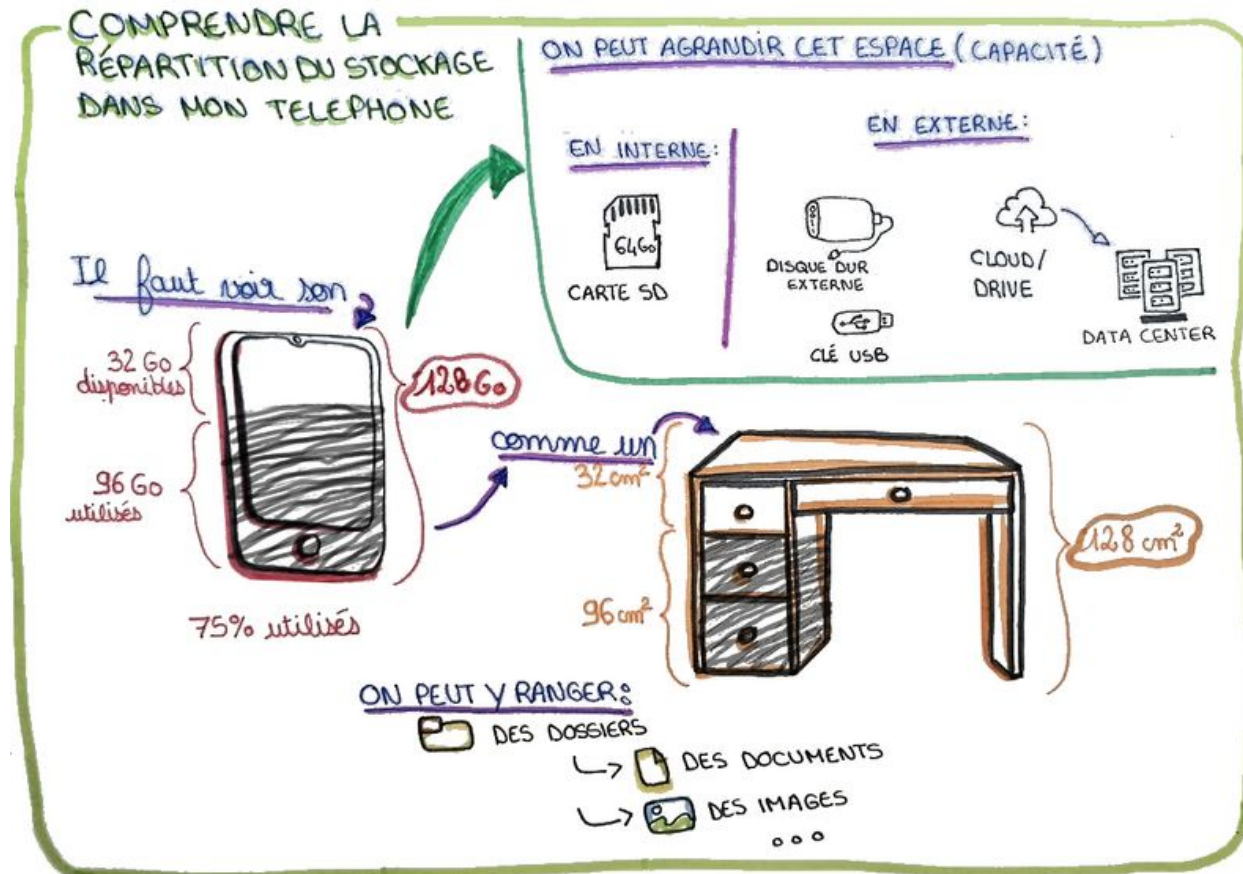 COMPRENDRE LA
RÉPARTITION DU STOCKAGE
DANS MON TELEPHONE
ON PEUT AGRANDIR CET ESPACE (CAPACITÉ)
EN INTERNE:
EN EXTERNE:
64Go
CARTE SD
DISQUE DUR
EXTERNE
CLÉ USB
CLOUD/
DRIVE
DATA CENTER
Il faut voir son
32 Go
disponibles
128 Go
96 Go
utilisés
75% utilisés
comme un
32 cm²
128 cm²
96 cm²
ON PEUT Y RANGER:
DES DOSSIERS
DES DOCUMENTS
DES IMAGES